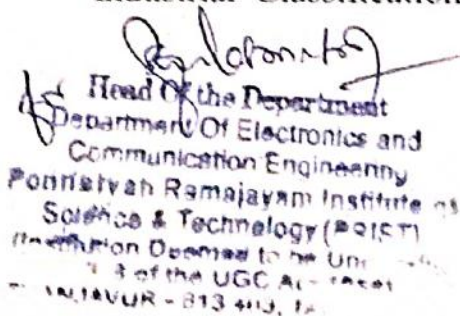 Industrial Classification
Head Of the Department
Department Of Electronics and
Communication Engineering
Ponnaiyah Ramajayam Institute of
Science & Technology (PRIST)
Institution Deemed to be
3 of the UGC
THANJAVUR - 613 403,